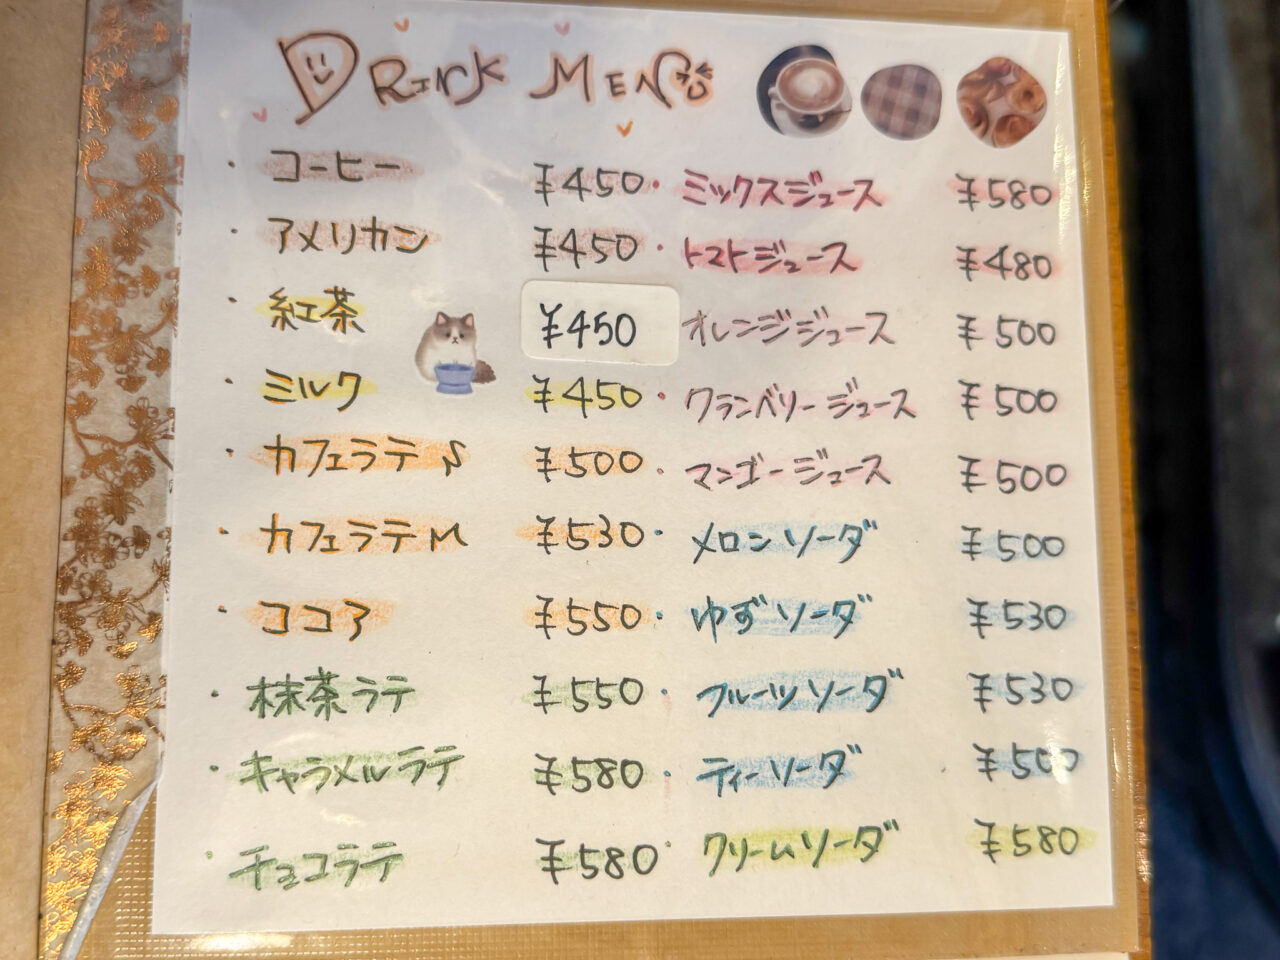 DRINK MENU
・コーヒー ¥450
・アメリカン ¥450
・紅茶 ¥450
・ミルク ¥450
・カフェラテ S ¥500
・カフェラテ M ¥530
・ココア ¥550
・抹茶ラテ ¥550
・キャラメルラテ ¥580
・チョコラテ ¥580
・ミックスジュース ¥580
・トマトジュース ¥480
オレンジジュース ¥500
・クランベリージュース ¥500
・マンゴージュース ¥500
・メロンソーダ ¥500
・ゆずソーダ ¥530
・フルーツソーダ ¥530
・ティーソーダ ¥500
・クリームソーダ ¥580